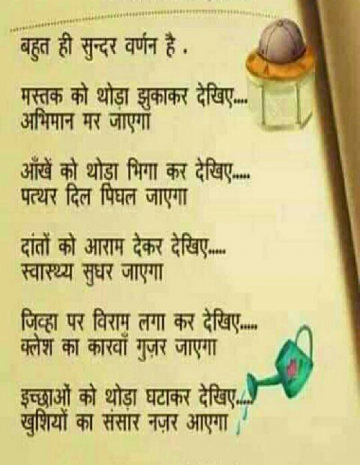 बहुत ही सुन्दर वर्णन है .
मस्तक को थोड़ा झुकाकर देखिए....
अभिमान मर जाएगा
आँखें को थोड़ा भिगा कर देखिए.....
पत्थर दिल पिघल जाएगा
दांतों को आराम देकर देखिए.....
स्वास्थ्य सुधर जाएगा
जिव्हा पर विराम लगा कर देखिए.....
क्लेश का कारवाँ गुज़र जाएगा
इच्छाओं को थोड़ा घटाकर देखिए.....
खुशियों का संसार नज़र आएगा